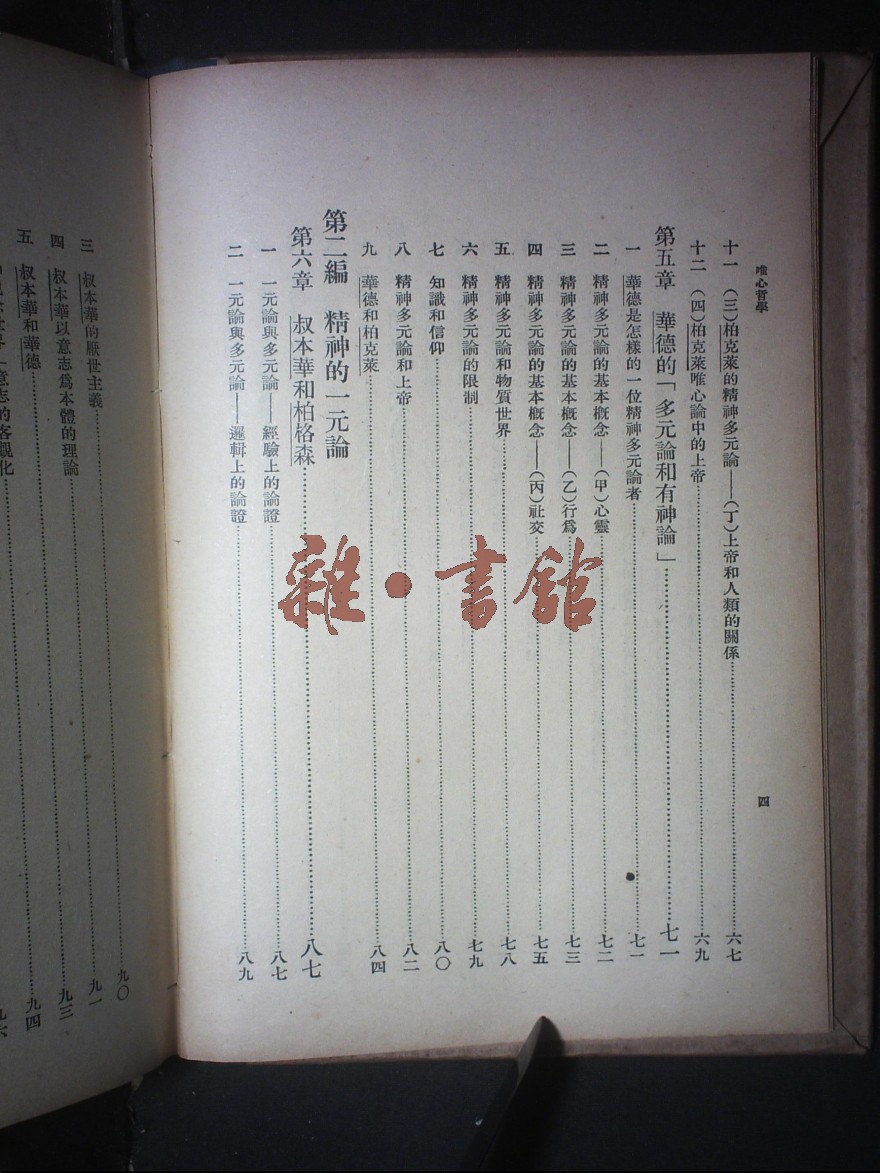 唯心哲學
四
十一 (三)柏克萊的精神多元論——(丁)上帝和人類的關係……六七
十二 (四)柏克萊唯心論中的上帝……六九
第五章 華德的「多元論和有神論」……七一
一 華德是怎樣的一位精神多元論者……七一
二 精神多元論的基本概念——(甲)心靈……七二
三 精神多元論的基本概念——(乙)行爲……七三
四 精神多元論的基本概念——(丙)社交……七五
五 精神多元論和物質世界……七八
六 精神多元論的限制……七九
七 知識和信仰……八〇
八 精神多元論和上帝……八二
九 華德和柏克萊……八四
第二編 精神的一元論
第六章 叔本華和柏格森……八七
一 一元論與多元論——經驗上的論證……八七
二 一元論與多元論——邏輯上的論證……八九
三 叔本華的厭世主義……九〇
四 叔本華以意志爲本體的理論……九一
五 叔本華和華德……九三
意志的客觀化……九四
雜·書館